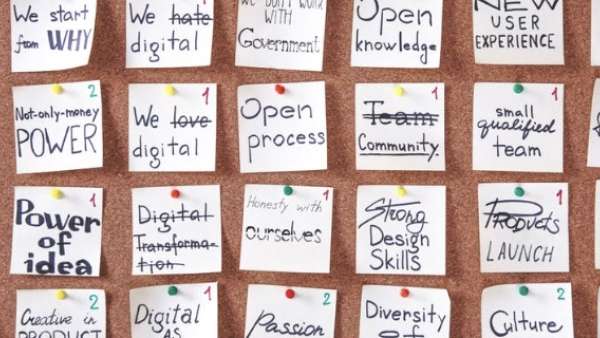 We start
from WHY
We hate
digital
We DON'T WORK
WITH
Government
Open
knowledge
NEW
USER
EXPERIENCE
2
Not-only-money
POWER
1
We love
digital
Open
process
1
Team
Community
small
qualified
team
1
Power
of
idea
Digital
Transforma-
tion
1
Honesty with
ourselves
Strong
Design
Skills
1
Products
LAUNCH
2
Creative in
PRODUCT
1
Digital
AS
2
Passion
Diversity
of
2
Culture